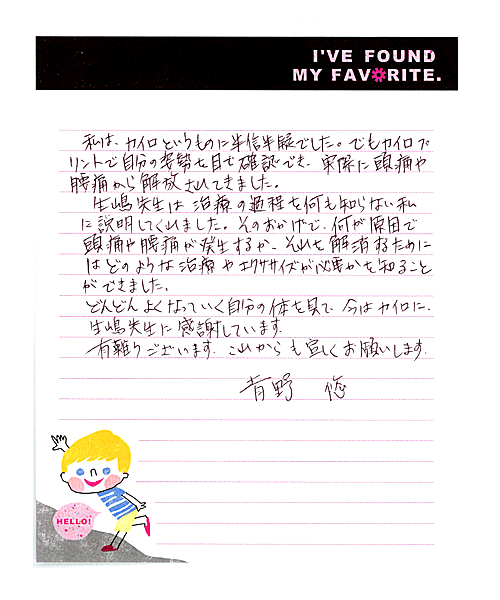 I'VE FOUND
MY FAVORITE.
私は、カイロというものに半信半疑でした。でもカイロプ
リントで自分の姿勢を目で確認でき、実際に頭痛や
腰痛から解放されてきました。
生嶋先生は治療の過程を何も知らない私
に説明してくれました。そのおかげで、何が原因で
頭痛や腰痛が発生するか、それを解消するために
はどのような治療やエクササイズが必要かを知ること
ができました。
どんどんよくなっていく自分の体を見て、今はカイロに、
生嶋先生に感謝しています。
有難うございます。これからも宜しくお願いします。
青野 悠
HELLO!